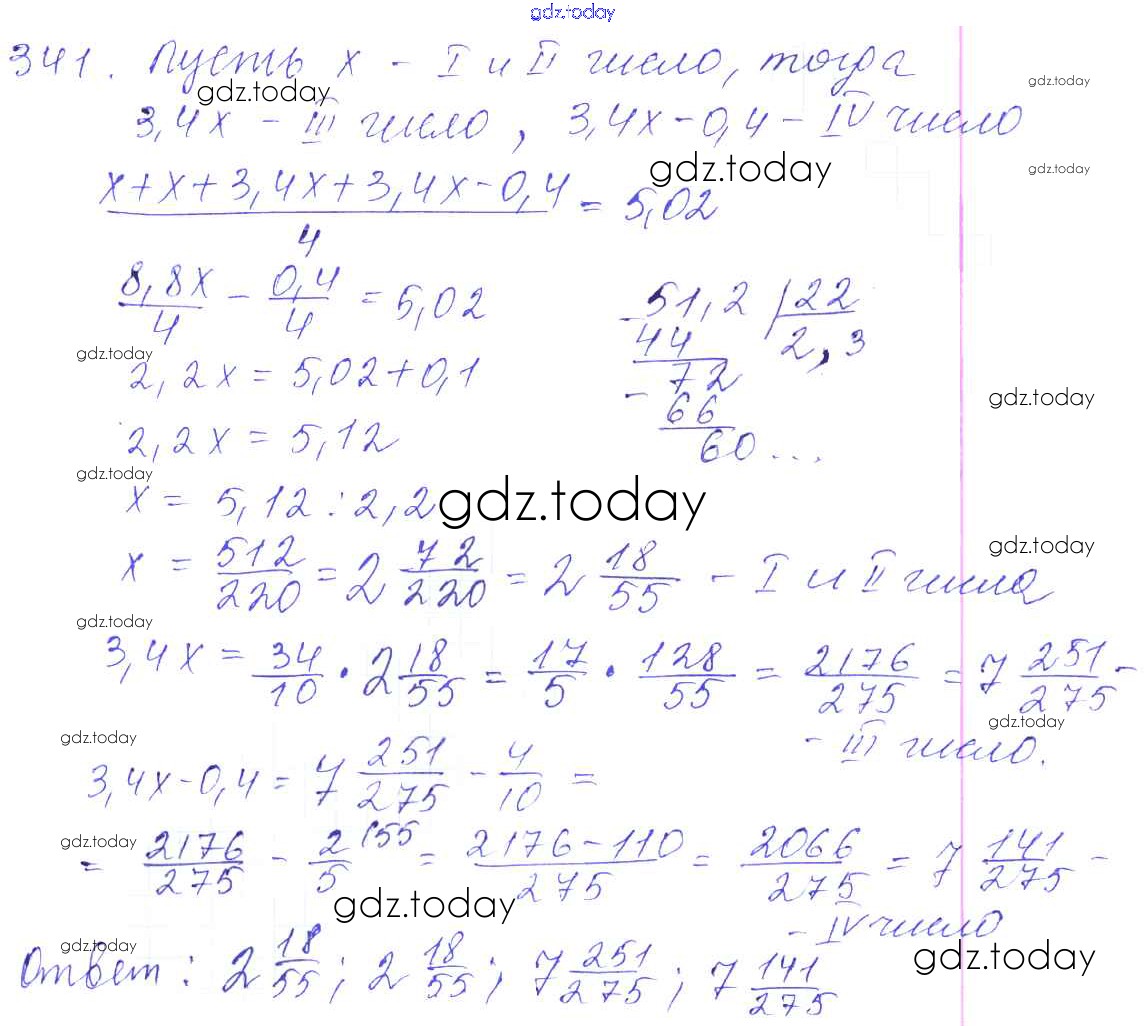 gdz.today
341. Пусть x - I и II число, тогда
gdz.today
gdz.today
3,4x - III число, 3,4x-0,4 - IV число
gdz.today
gdz.today
(x+x+3,4x+3,4x-0,4)/4 = 5,02
8,8x/4 - 0,4/4 = 5,02
51,2 | 22
- 44
2,3
72
- 66
60...
gdz.today
2,2x = 5,02+0,1
gdz.today
2,2x = 5,12
gdz.today
x = 5,12 : 2,2
gdz.today
gdz.today
x = 512/220 = 2 72/220 = 2 18/55 - I и II числа
gdz.today
3,4x = 34/10 · 2 18/55 = 17/5 · 128/55 = 2176/275 = 7 251/275 -
gdz.today
- III число.
gdz.today
3,4x-0,4 = 7 251/275 - 4/10 =
gdz.today
= 2176/275 - 2/5 (55 = (2176-110)/275 = 2066/275 = 7 141/275 -
gdz.today
- IV число
gdz.today
gdz.today
Ответ: 2 18/55; 2 18/55; 7 251/275; 7 141/275